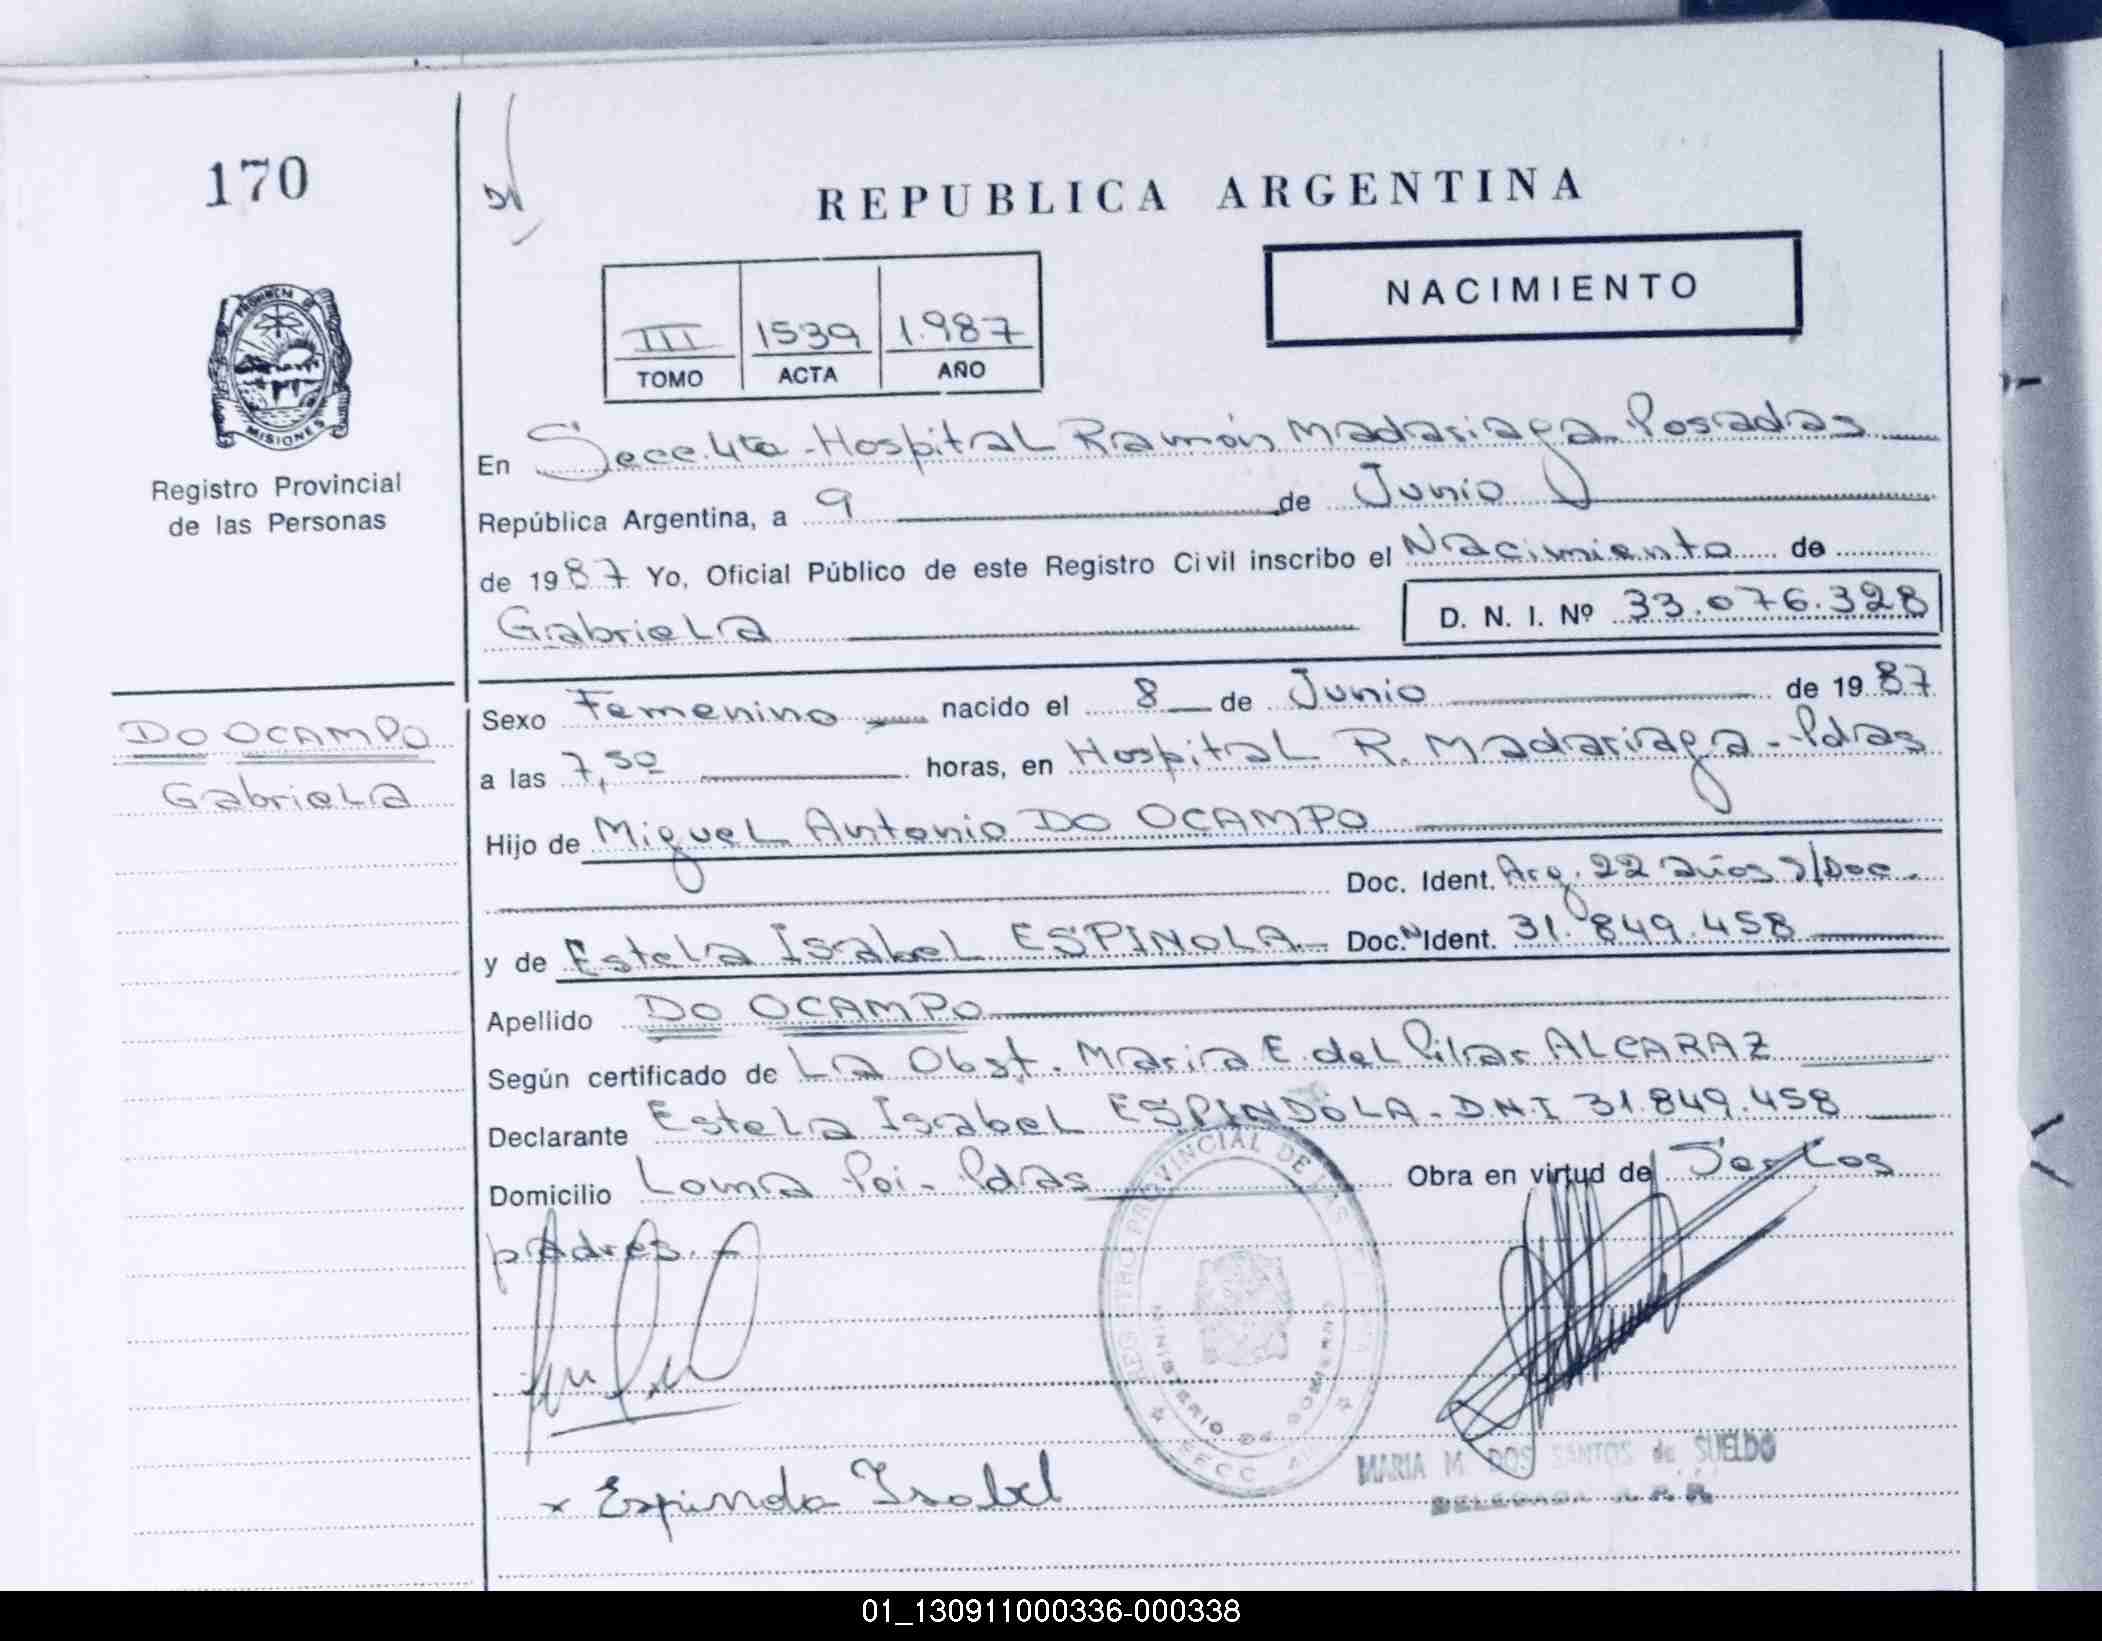 170
REPUBLICA ARGENTINA
NACIMIENTO
III 1539 1.987
TOMO ACTA AÑO
PROVINCIA DE
MISIONES
Registro Provincial
de las Personas
En Secc. 4ta - Hospital Ramón Madariaga Posadas
República Argentina, a 9 de Junio
de 1987 Yo, Oficial Público de este Registro Civil inscribo el Nacimiento de
Gabriela D. N. I. Nº 33.076.328
DO OCAMPO
Gabriela
Sexo Femenino nacido el 8 de Junio de 1987
a las 7,50 horas, en Hospital R. Madariaga - Pdas
Hijo de Miguel Antonio DO OCAMPO
Doc. Ident. Arg. 22 años s/Doc.
y de Estela Isabel ESPINOLA Doc. Ident. 31.849.458
Apellido DO OCAMPO
Según certificado de La Obst. Maria E. del Pilar ALCARAZ
Declarante Estela Isabel ESPINDOLA - D.N.I 31.849.458
Domicilio Loma Poi - Pdas Obra en virtud de
padres. -
REGISTRO PROVINCIAL DE LAS
MINISTERIO DE GOBIERNO
SECC
x Espindola Isabel
MARIA M. DOS SANTOS de SUELDO
DELEGADA R. P. P.
01_130911000336-000338